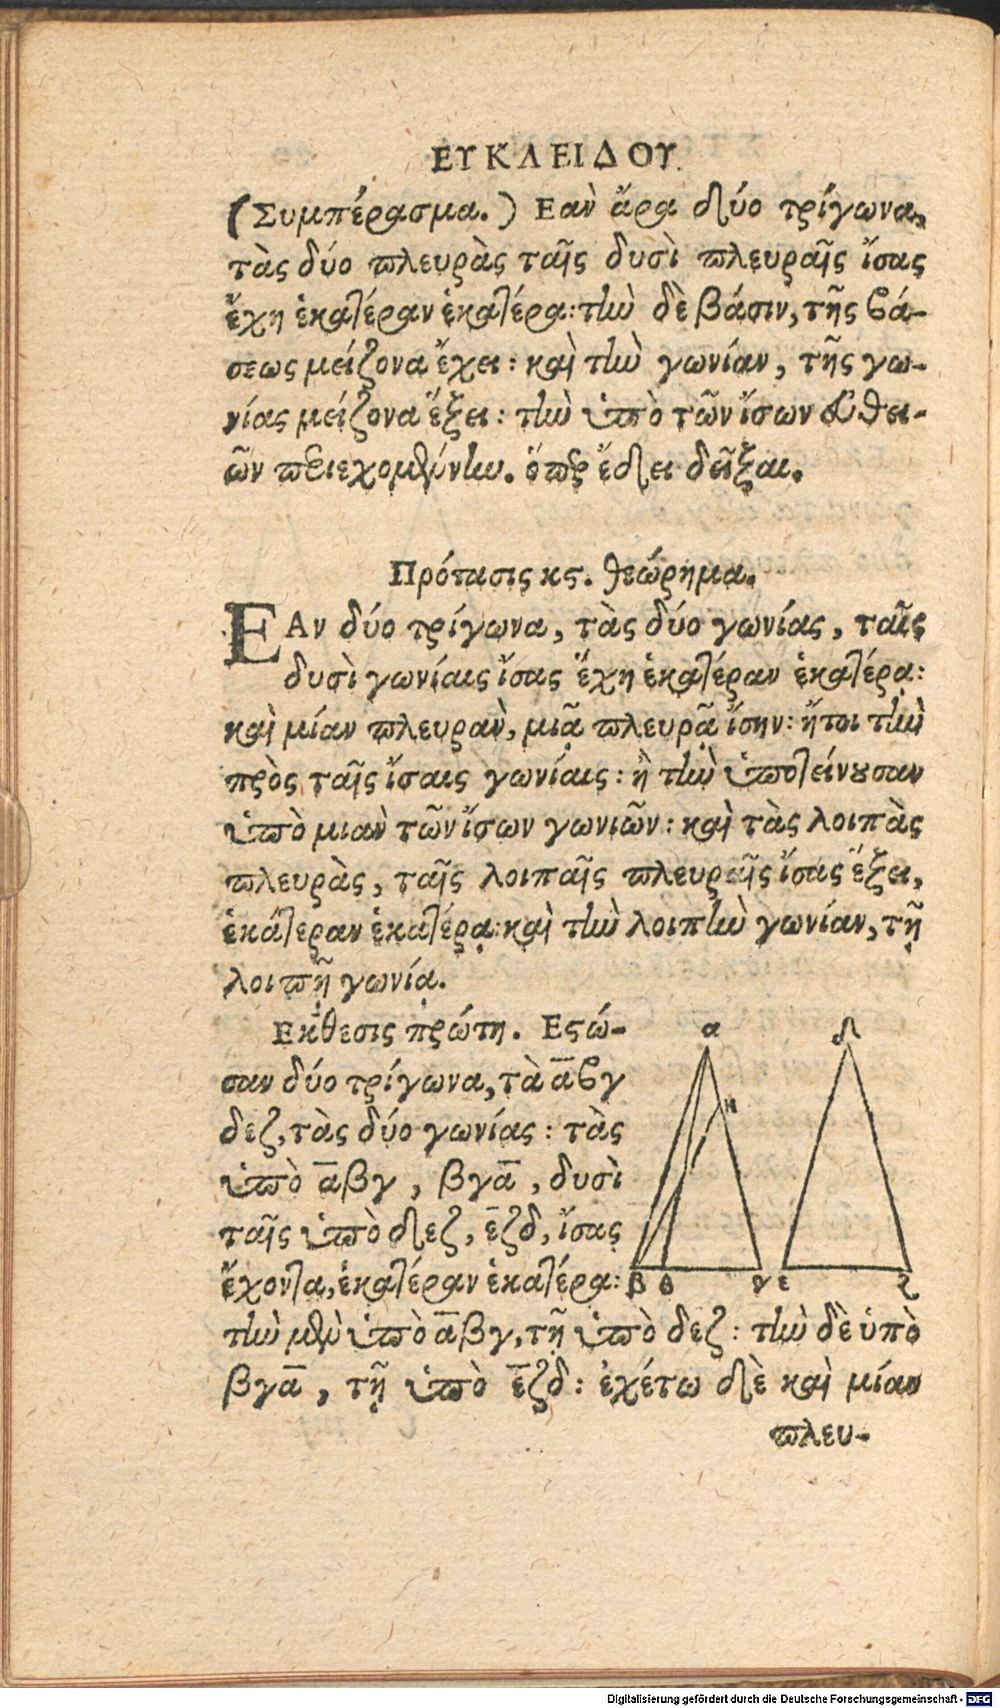 ΕΥΚΛΕΙΔΟΥ.
(Συμπέρασμα.) Εαν ἄρα δύο τρίγωνα,
τὰς δύο πλευρὰς ταῖς δυσὶ πλευραῖς ἴσας
ἔχη ἑκατέραν ἑκατέρα: τὴν δὲ βάσιν, τῆς βά-
σεως μείζονα ἔχει: καὶ τὴν γωνίαν, τῆς γω-
νίας μείζονα ἕξει: τὴν ὑπὸ τῶν ἴσων εὐθει-
ῶν περιεχομένην. ὅπερ ἔδει δεῖξαι.
Πρότασις κϛ. θεώρημα.
ΕΑν δύο τρίγωνα, τὰς δύο γωνίας, ταῖς
δυσὶ γωνίαις ἴσας ἔχη ἑκατέραν ἑκατέρᾳ:
καὶ μίαν πλευρὰν, μιᾷ πλευρᾷ ἴσην: ἤτοι τὴν
πρὸς ταῖς ἴσαις γωνίαις: ἢ τὴν ὑποτείνουσαν
ὑπὸ μιὰν τῶν ἴσων γωνιῶν: καὶ τὰς λοιπὰς
πλευρὰς, ταῖς λοιπαῖς πλευραῖς ἴσας ἕξει,
ἑκάτεραν ἑκατέρᾳ: καὶ τὴν λοιπὴν γωνίαν, τῇ
λοιπῇ γωνίᾳ.
Εκθεσις πρώτη. Εστώ-
σαν δύο τρίγωνα, τὰ α̅βγ
δεζ, τὰς δύο γωνίας: τὰς
ὑπὸ α̅βγ, βγα̅, δυσὶ
ταῖς ὑπὸ δεζ, ε̅ζδ, ἴσας
ἔχοντα, ἑκατέραν ἑκατέρα:
τὴν μὲν ὑπὸ α̅βγ, τῇ ὑπὸ δεζ: τὴν δὲ ὑπὸ
βγα̅, τῇ ὑπὸ ε̅ζδ: ἐχέτω δὲ καὶ μίαν
πλευ-
α δ
η
β θ γ ε ζ
Digitalisierung gefördert durch die Deutsche Forschungsgemeinschaft - DFG